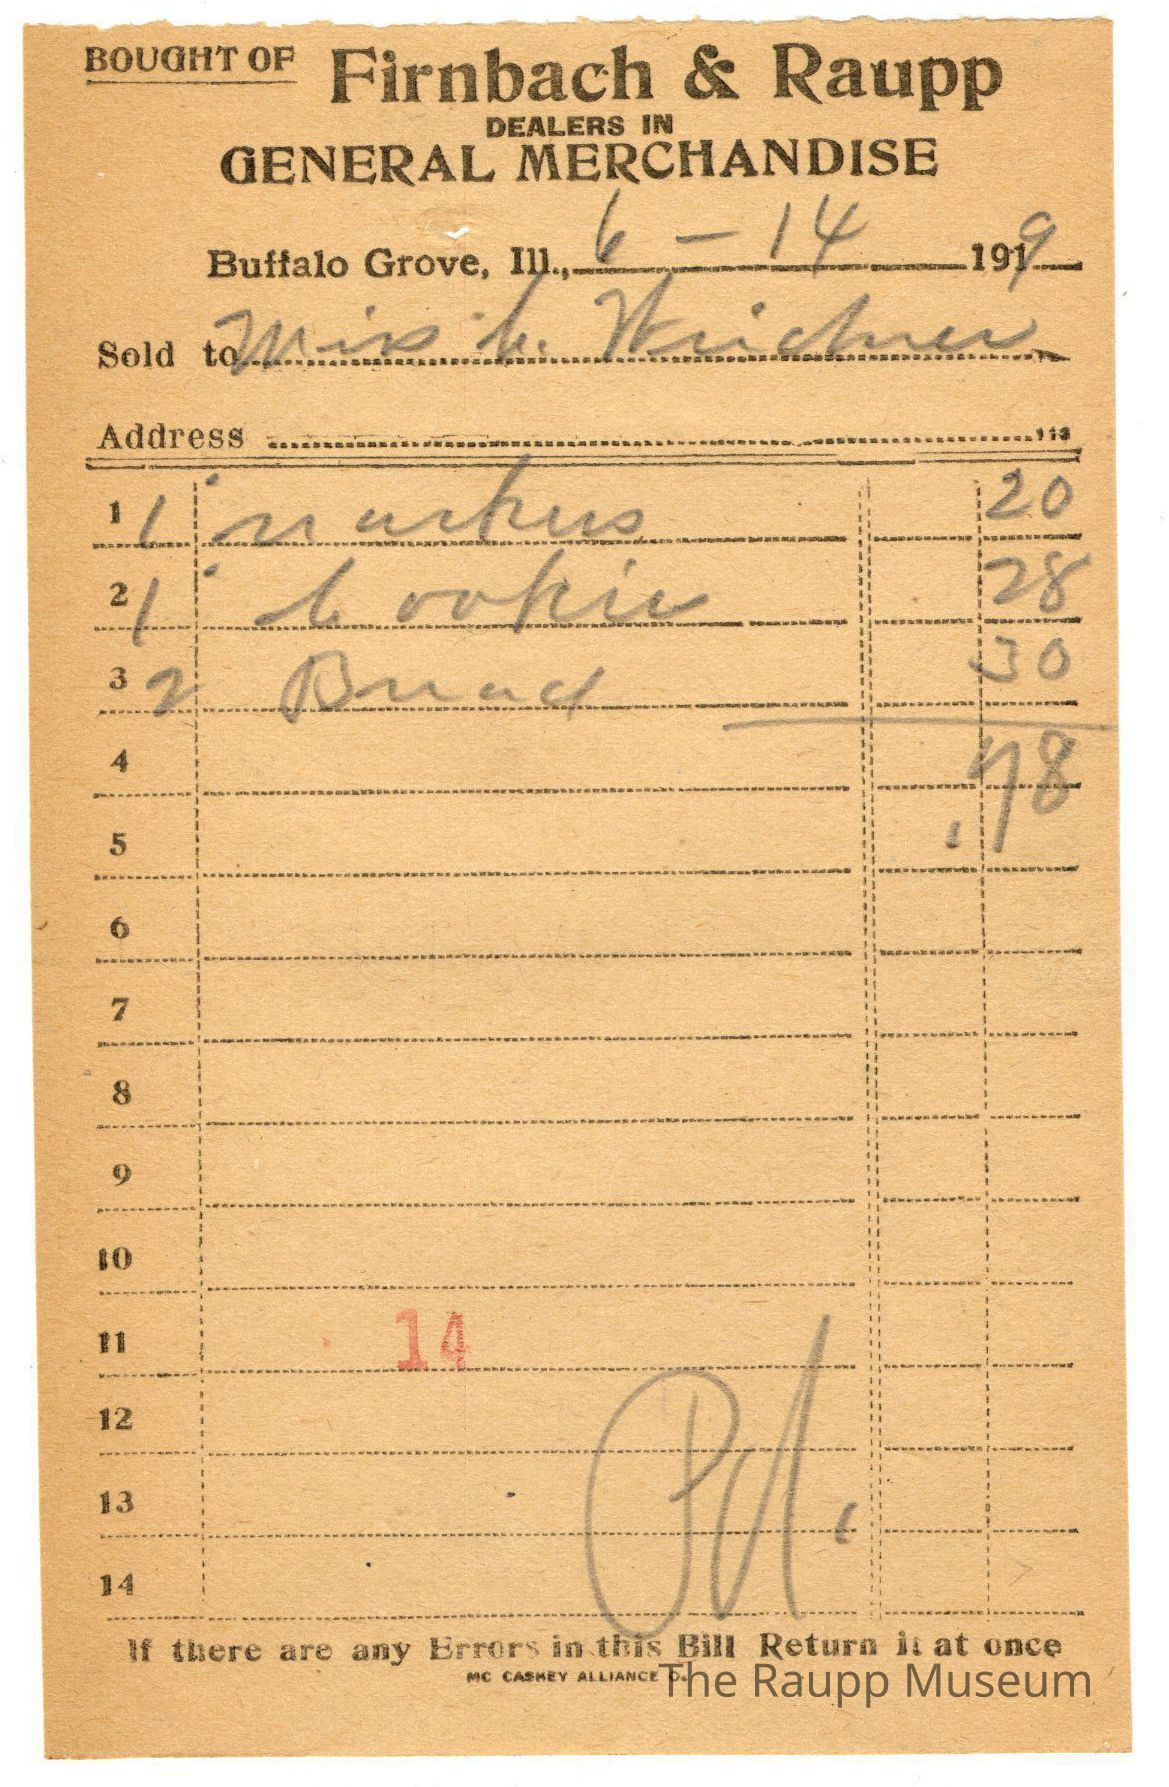 BOUGHT OF Firnbach & Raupp
DEALERS IN
GENERAL MERCHANDISE
Buffalo Grove, Ill., 6 - 14 1919
Sold to Miss
Address
1 1 20
2 1 Cookie 28
3 2 Bread 30
4 .78
5
6
7
8
9
10
11 14
12
13 Pd.
14
If there are any Errors in this Bill Return it at once
MC CASKEY ALLIANCE O.
The Raupp Museum